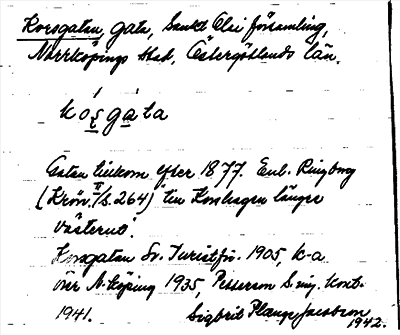 Korsgatan, gata, Sankt Olai församling,
Norrköpings stad, Östergötlands län.
kósgàta
Gatan tillkom efter 1877. Enl. Ringborg
(Krön. II/s. 264) "till Konhagen längre
västerut".
Korsgatan Sv. Turistför. 1905, k-a
över N-köping 1935, Petterson S. ing. kont.
1941.
Sigbrit Plange Jacobson
1942.